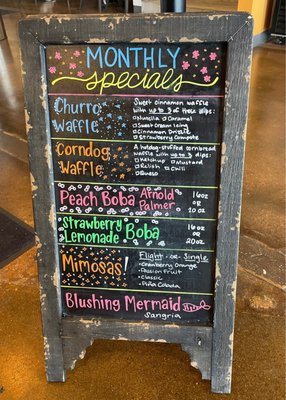 MONTHLY
specials
Churro
Waffle
Sweet cinnamon waffle
with up to 3 of these dips:
Nutella Caramel
Sweet Cream Icing
Cinnamon Drizzle
Strawberry Compote
Corndog
Waffle
A hotdog-stuffed cornbread
waffle with up to 3 dips:
Ketchup Mustard
Relish Chili
Queso
Peach Boba Arnold
Palmer
16oz
or
20 oz
Strawberry
Lemonade Boba
16oz
or
20oz
Mimosas!
Flight -or- Single
Cranberry Orange
Passion Fruit
Classic
Piña Colada
Blushing Mermaid
Sangria